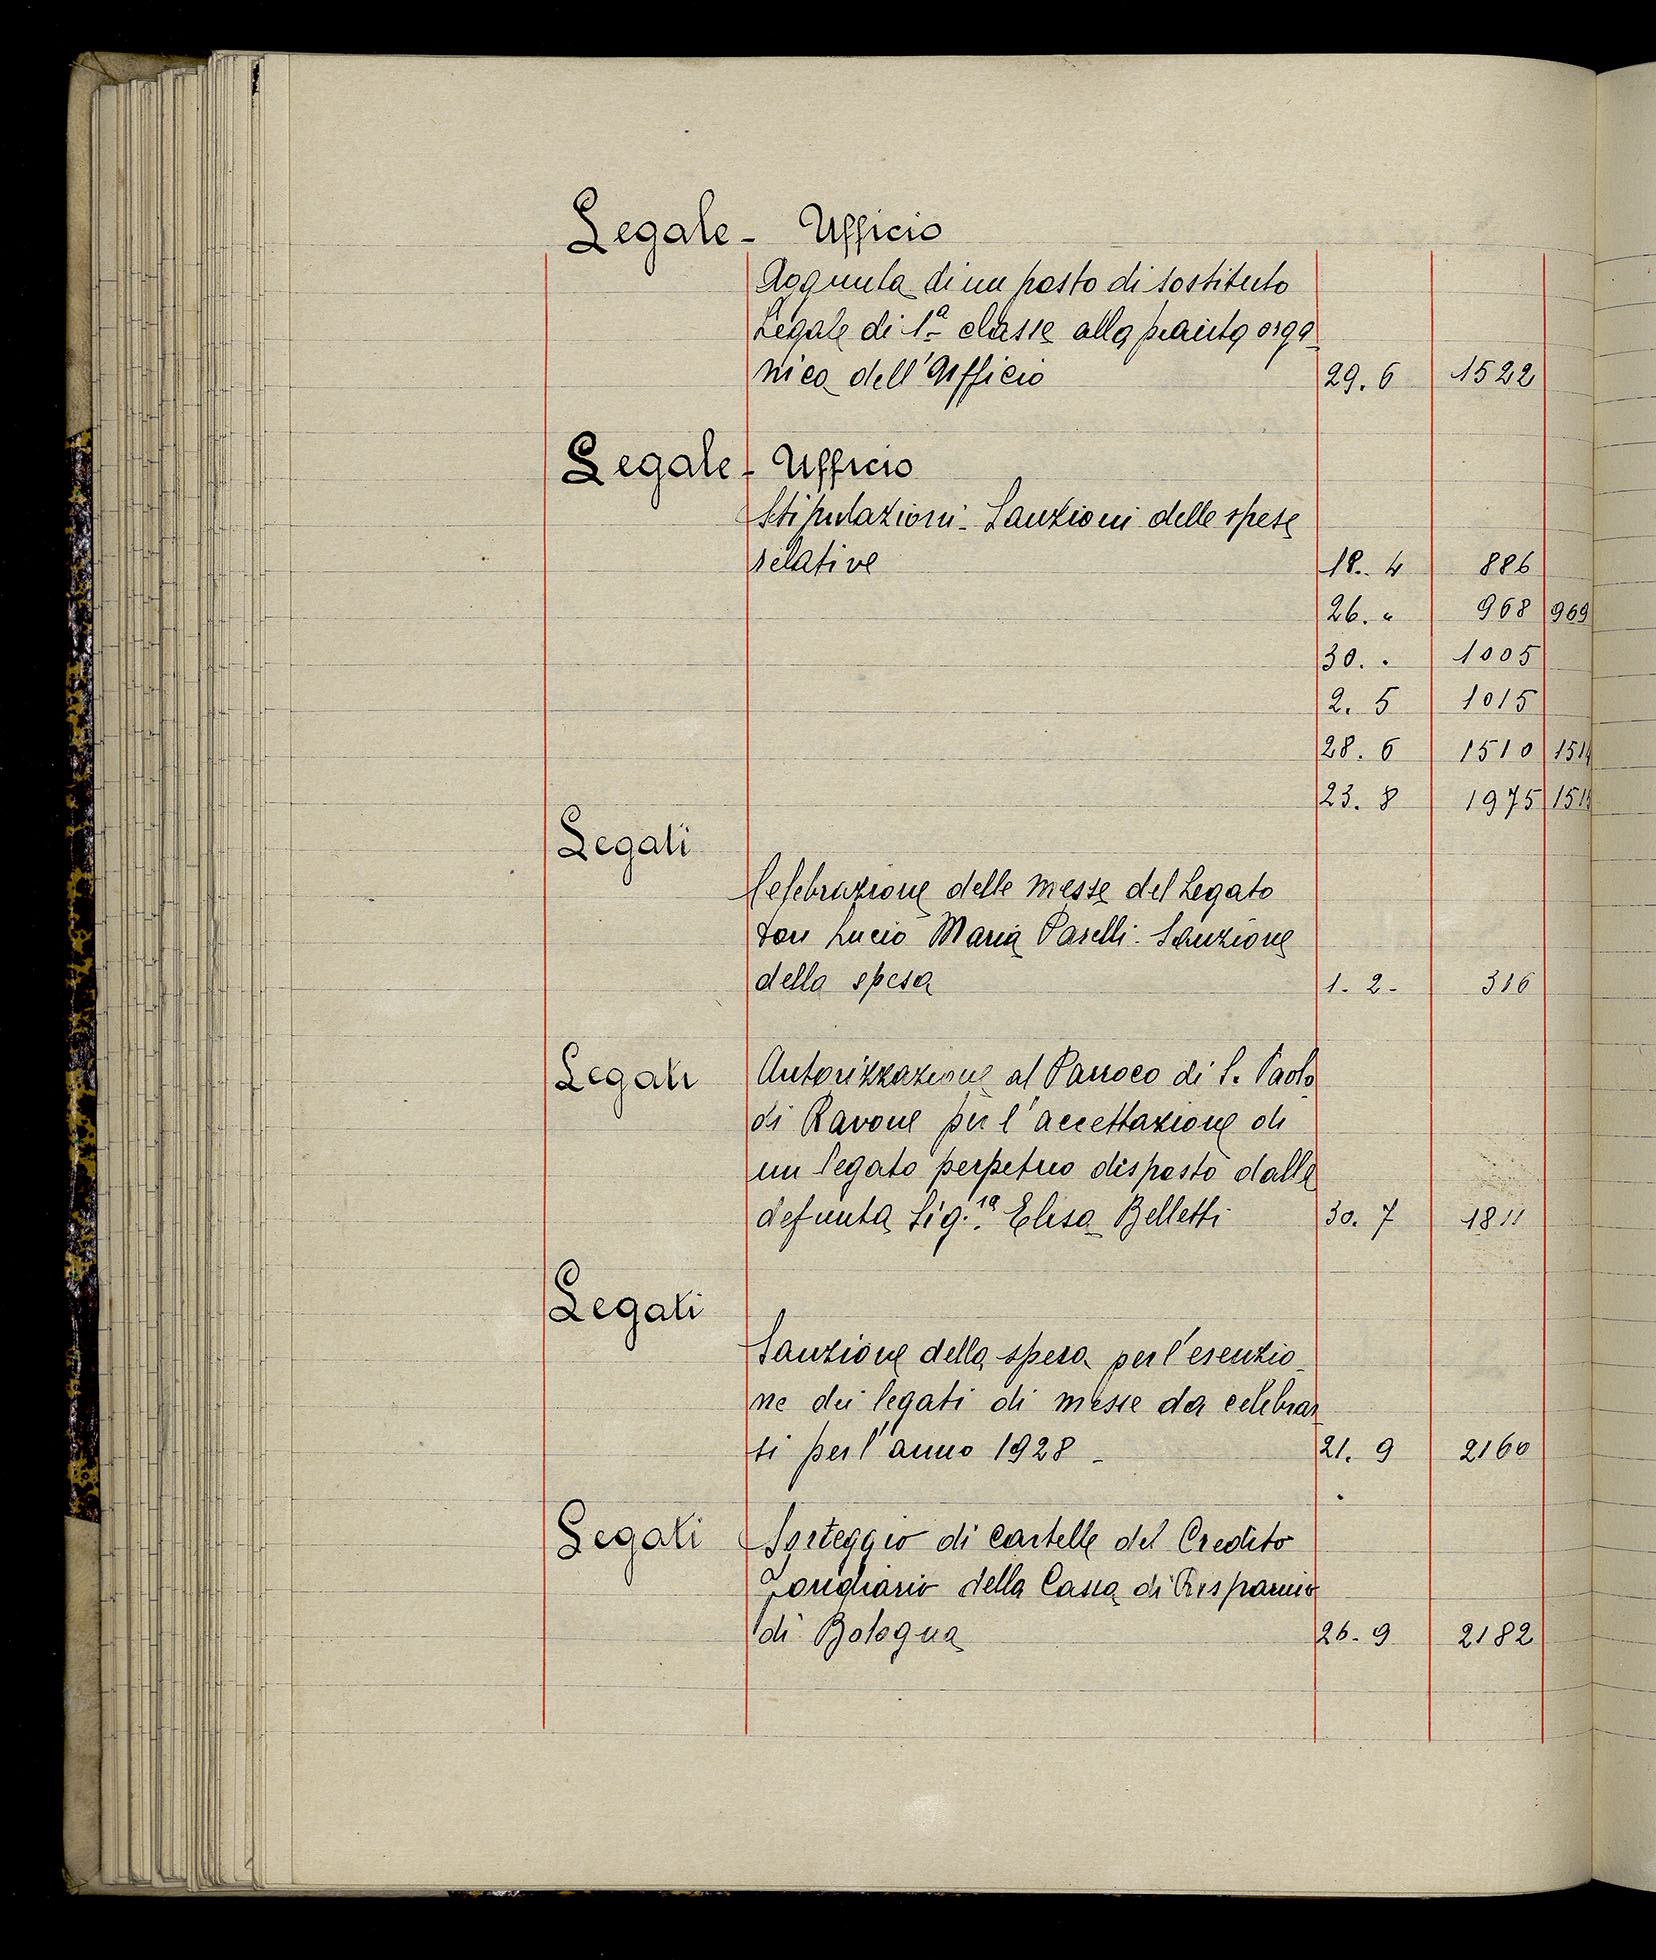 Legale - Ufficio
Aggiunta di un posto di sostituto
Legale di 1ª classe alla pianta orga
nica dell'Ufficio 29. 6 1522
Legale - Ufficio
Stipulazioni - Sanzioni delle spese
relative 18. 4 886
26. " 968 969
30. " 1005
2. 5 1015
28. 6 1510 1514
23. 8 1975
Legati
Celebrazione delle messe del Legato
Don Lucio Maria Paselli - Sanzione
della spesa 1. 2 - 316
Legati Autorizzazione al Parroco di S. Paolo
di Ravone per l'accettazione di
un legato perpetuo disposto dalla
defunta Sig.ra Elisa Belletti 30. 7 1811
Legati
Sanzione della spesa per l'esenzio
ne dei legati di messe da celebrar
si per l'anno 1928 - 21. 9 2160
Legati Sorteggio di cartelle del Credito
Fondiario della Cassa di Risparmio
di Bologna 26 - 9 2182